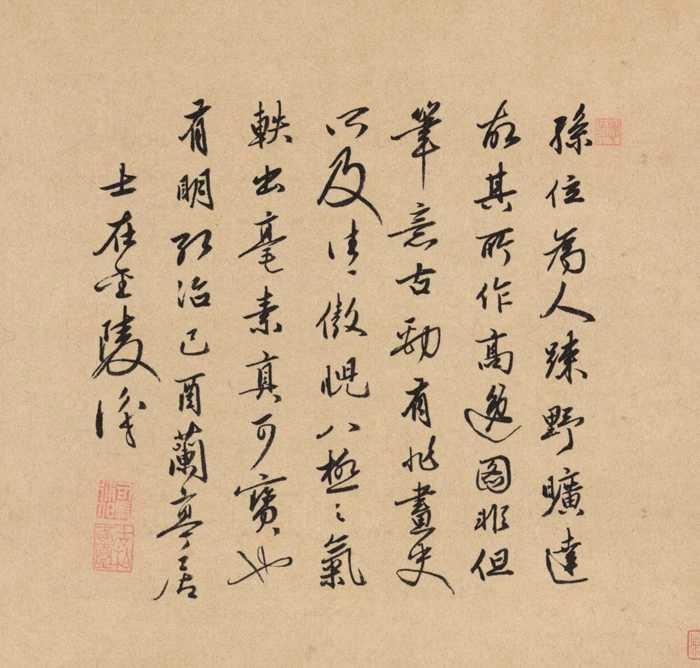 孫位為人疎野曠達
故其所作高逸圖非但
筆意古勁有非畫史
所及往〻傲睨八極之氣
軼出毫素真可寶也
有明弘治己酉蘭亭居
士在金陵識